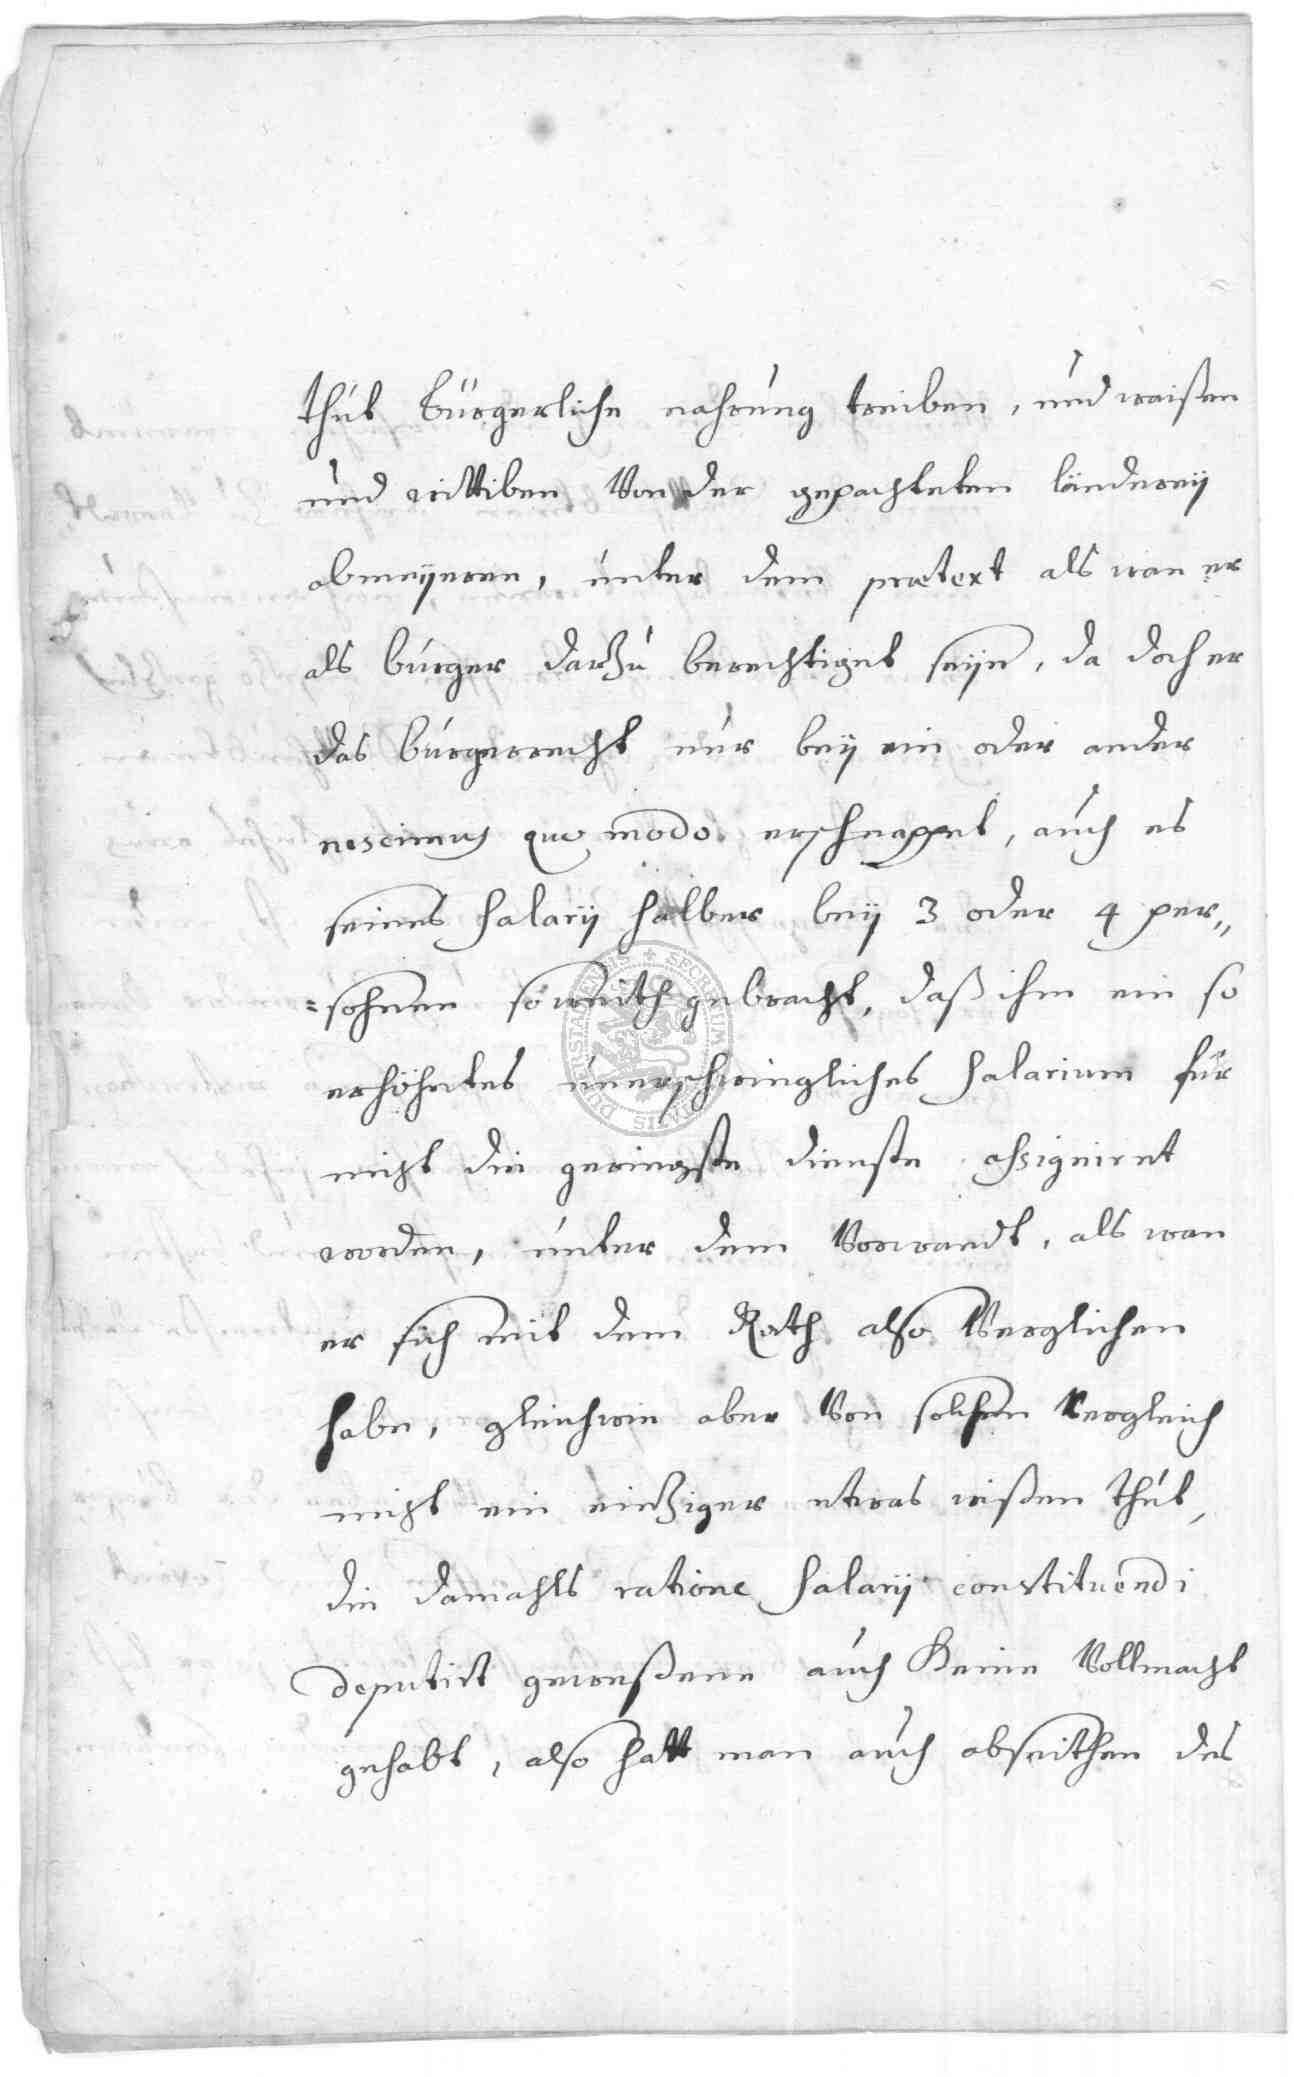 thut bürgerliche nahrung treiben, und waißen
und wittiben Von der gepachteten länderey
abmeyeren, unter dem prætext als wan er
als burger darzu berechtiget seye, da doch er
das burgerrecht nur bey ein oder ander
nescimus quo modo erschnappet, auch es
seines Salarij halber bey 3 oder 4 per„
=sohnen so weith gebracht, daß ihm ein so
erhöhetes unerschwingliches Salarium für
nicht die geringste dienste assigniret
worden, unter dem Vorwandt, als wan
er sich mit dem Rath also Verglichen
habe, gleichwie aber Von solchen Vergleich
nicht ein eintziger etwas wißen thut,
die damahls ratione Salarij constituendi
deputirt geweßene auch Keine Vollmacht
gehabt, also hatt man auch abseithen des
SECRETUM
DUDERSTADENSIS